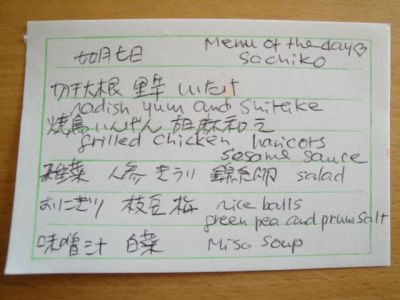 如月七日 Menu of the day♡
Sachiko
切干大根 里芋 しいたけ
radish yum and Shiteike
焼鳥 いんげん 胡麻和え
grilled chicken haricots
sesome sauce
人参 きうり 錦糸卵 salad
おにぎり 枝豆 梅 rice balls
green pea and prum salt
味噌汁 白菜 Miso soup